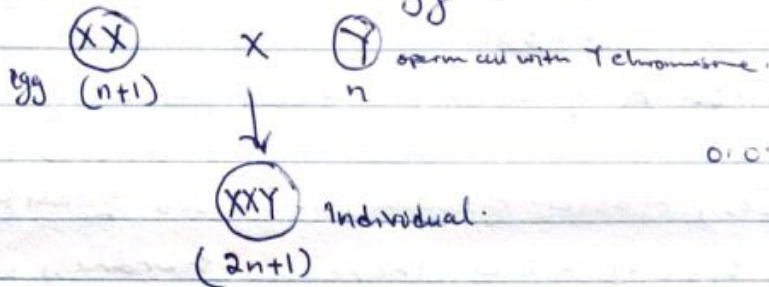 gg
XX x Y sperm cell with Y chromosome.
Egg (n+1) n
XXY Individual.
(2n+1)